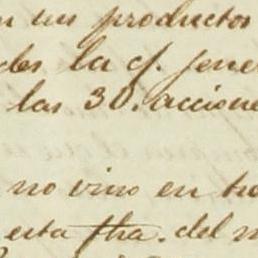 n un productos
des la cf. jene
las 30. accione
no vino en to
esta fha. del m